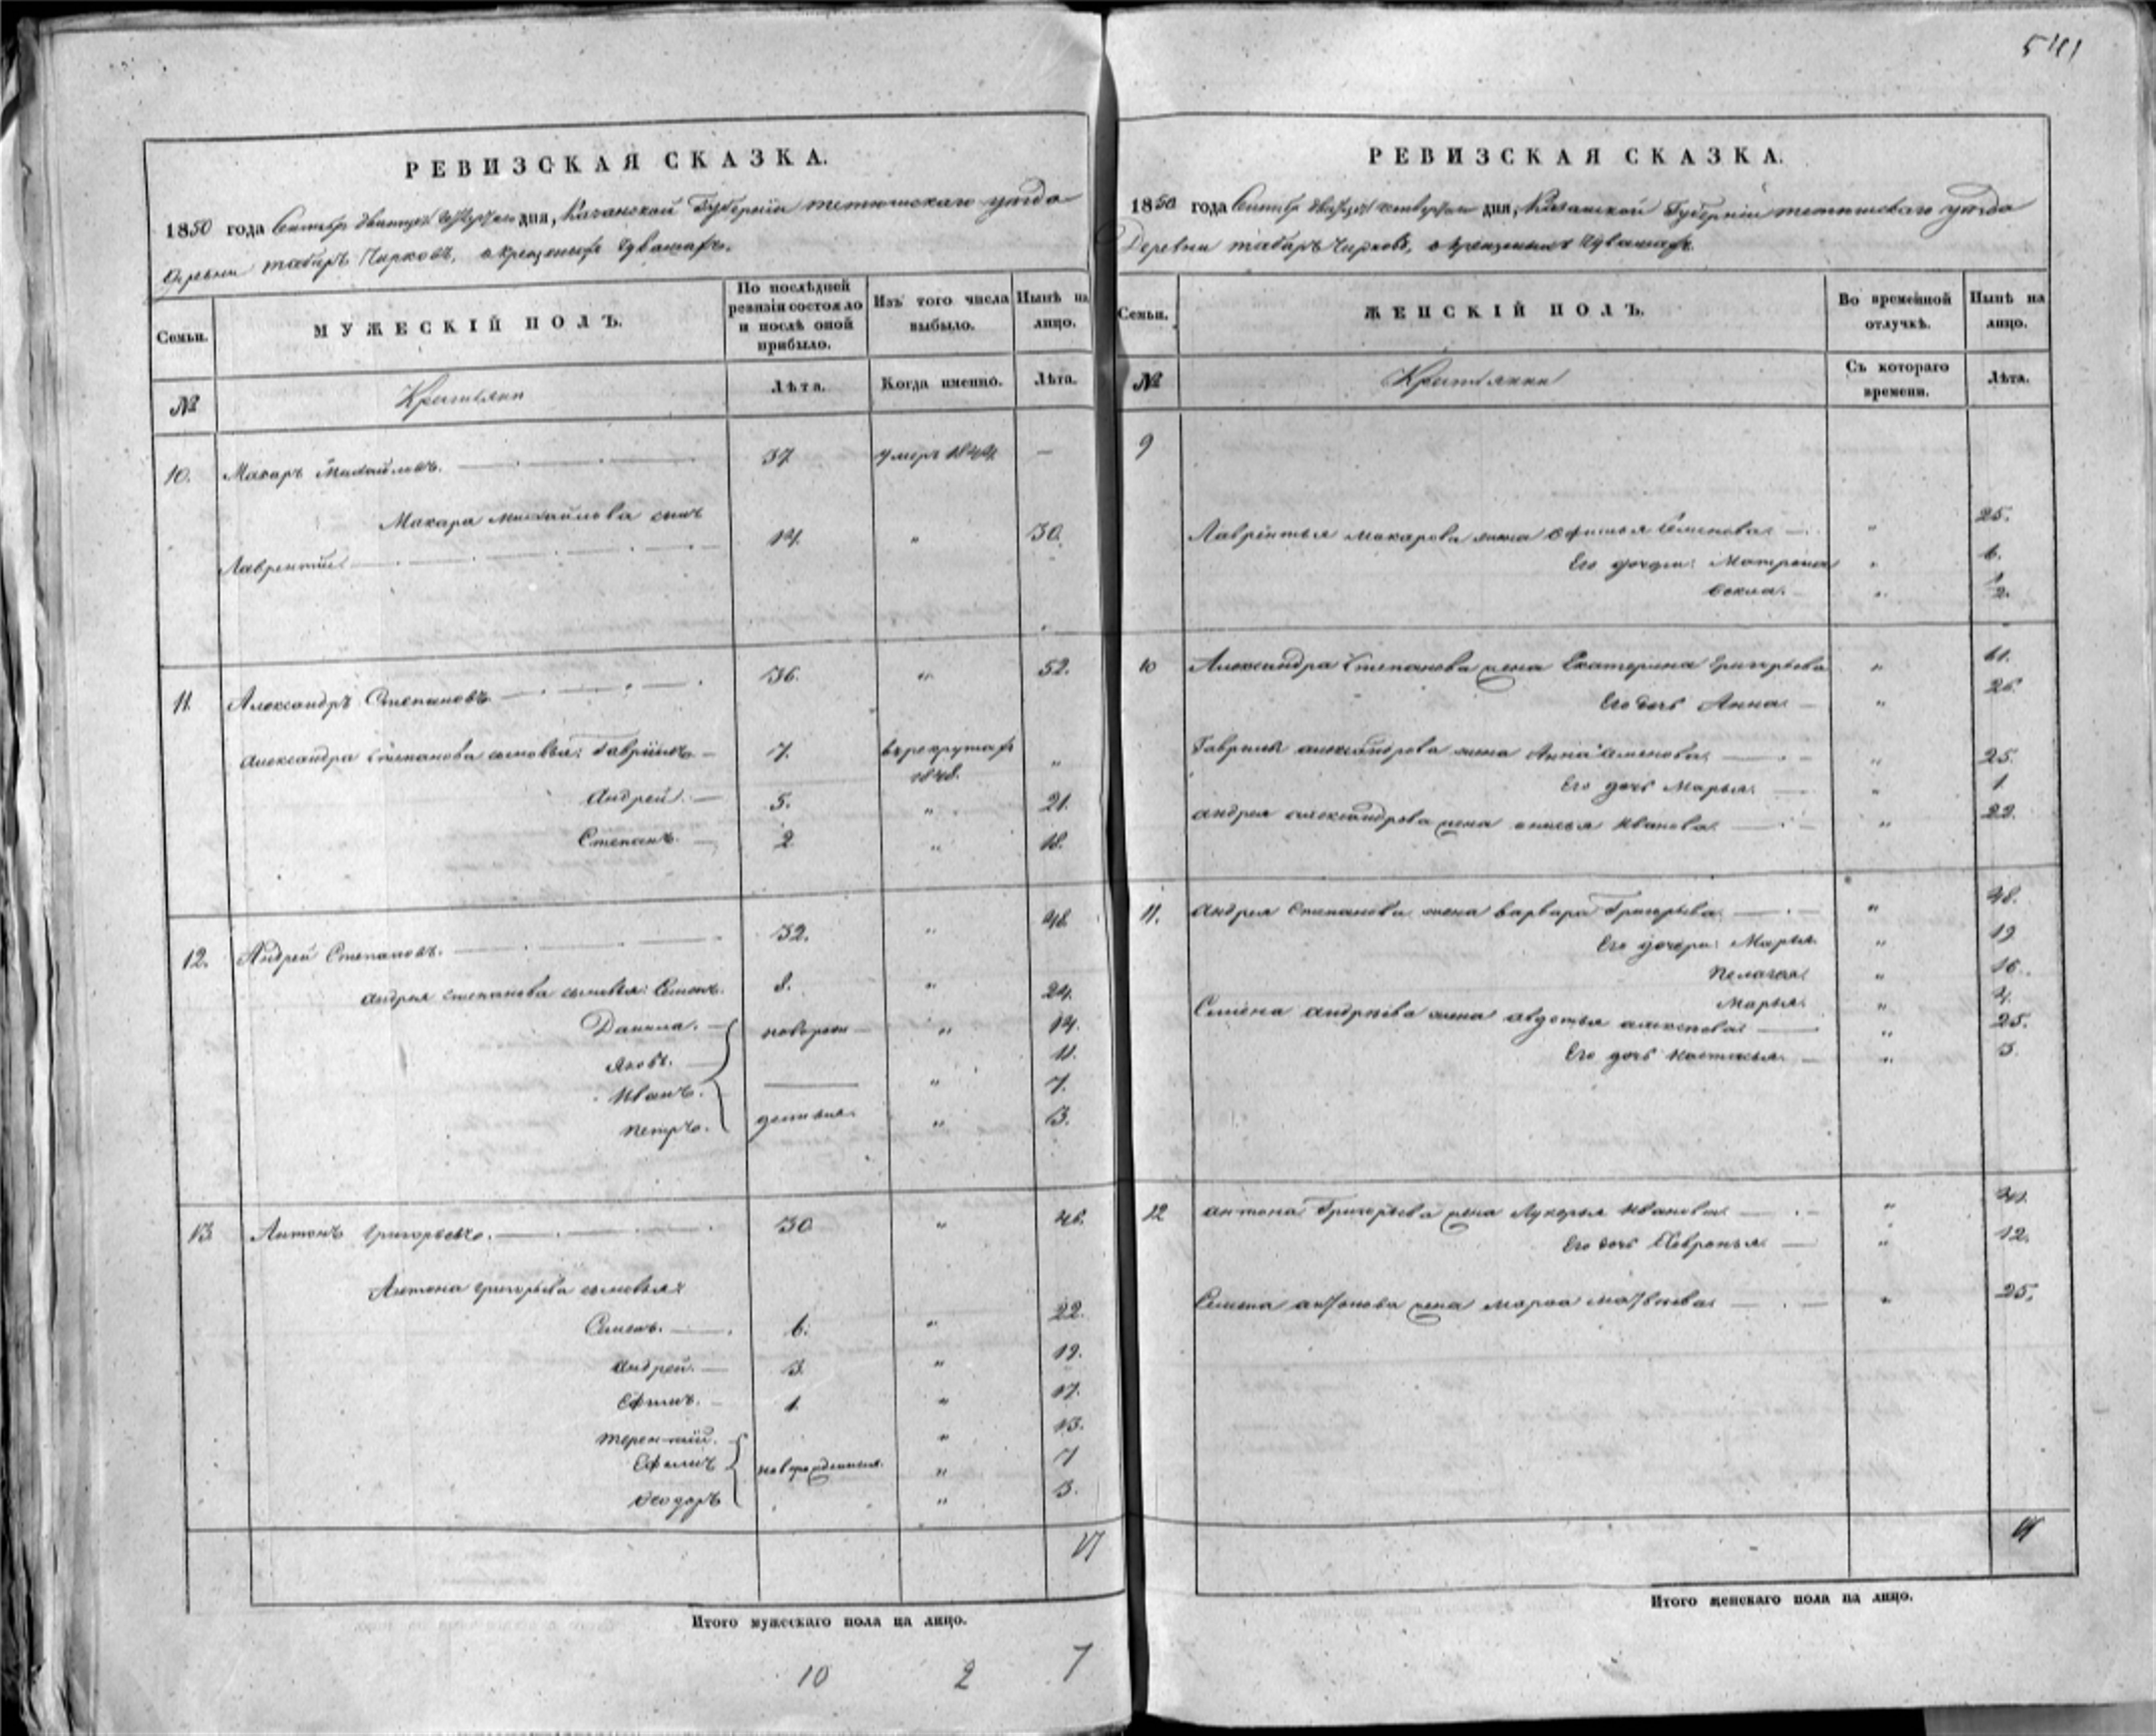 541
РЕВИЗСКАЯ СКАЗКА.
1850 года Сентября двадцать четвертаго дня, Казанской Губерніи тетюшскаго уезда
Деревни табаръ Чирковъ, о крещеныхъ Чувашахъ.
Семьи. МУЖЕСКІЙ ПОЛЪ. По послѣдней ревизіи состояло и послѣ оной прибыло. Изъ того числа выбыло. Нынѣ на лицо.
№ Крестьяне Лѣта. Когда именно. Лѣта.
10. Макаръ Михайловъ. 37 умеръ 1844 —
Макара михайлова сынъ
Лаврентій 14. " 30.
11. Александръ Степановъ 36. " 52.
Александра степанова сыновья: Гаврила 7. въ рекрутахъ 1848. "
Андрей. 5. " 21.
Степанъ. 2 " 18.
12. Андрей Степановъ. 32. " 48
Андрея степанова сыновья: Семенъ. 8. " 24.
Данила. новорож " 14.
Яковъ. 11.
Иванъ. " 7.
Петръ. денныя " 3.
13 Антонъ Григорьевъ. 30 " 46.
Антона григорьева сыновья:
Семенъ. 6. " 22.
Андрей. 3. " 19.
Ефимъ. 1. " 17.
Терентій. " 13.
Ефимъ новорожденныя. " 7
Ѳеодоръ " 3.
17
Итого мужескаго пола на лицо.
10 2 7
РЕВИЗСКАЯ СКАЗКА.
1850 года Сентября двадцать четвертаго дня, Казанской Губерніи тетюшскаго уезда
Деревни табаръ Чирковъ, о крещеныхъ Чувашахъ.
Семьи. ЖЕНСКІЙ ПОЛЪ. Во временной отлучкѣ. Нынѣ на лицо.
№ Крестьянки Съ котораго времени. Лѣта.
9
Лаврентья макарова жена Офимья Семенова " 25.
Его дочери: Матрена " 6.
Ѳекла. " 1/2.
10 Александра Степанова жена Екатерина Григорьева " 61.
Его дочь Анна " 26.
Гаврилы александрова жена Анна Семенова " 25.
Его дочь Марья. " 1.
Андрея александрова жена Иванова " 22.
11. Андрея Степанова жена варвара Григорьева " 48.
Его дочери: Марья " 19
Пелагея " 16.
Марья. " 4.
Семена андреева жена авдотья " 25.
Его дочь настасья. " 3.
12 Антона Григорьева жена Лукерья Иванова " 41.
Его дочь Февронья " 12.
Семена антонова жена марфа матвеева " 25.
Итого женскаго пола на лицо.